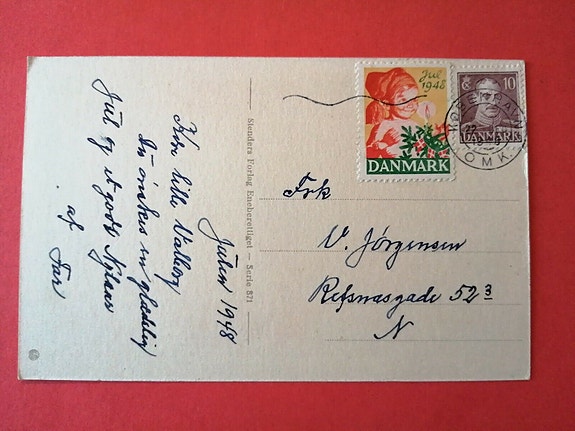 Julen 1948
Kære lille Valborg
Du ønskes en glædelig
Jul og et godt Nytaar
af Far
Stenders Forlag Eneberettiget — Serie 871
Jul
1948
DANMARK
10
DANMARK
KØBENHAVN
22
OMK.
Frk
V. Jörgensen
Refsnæsgade 52³
N